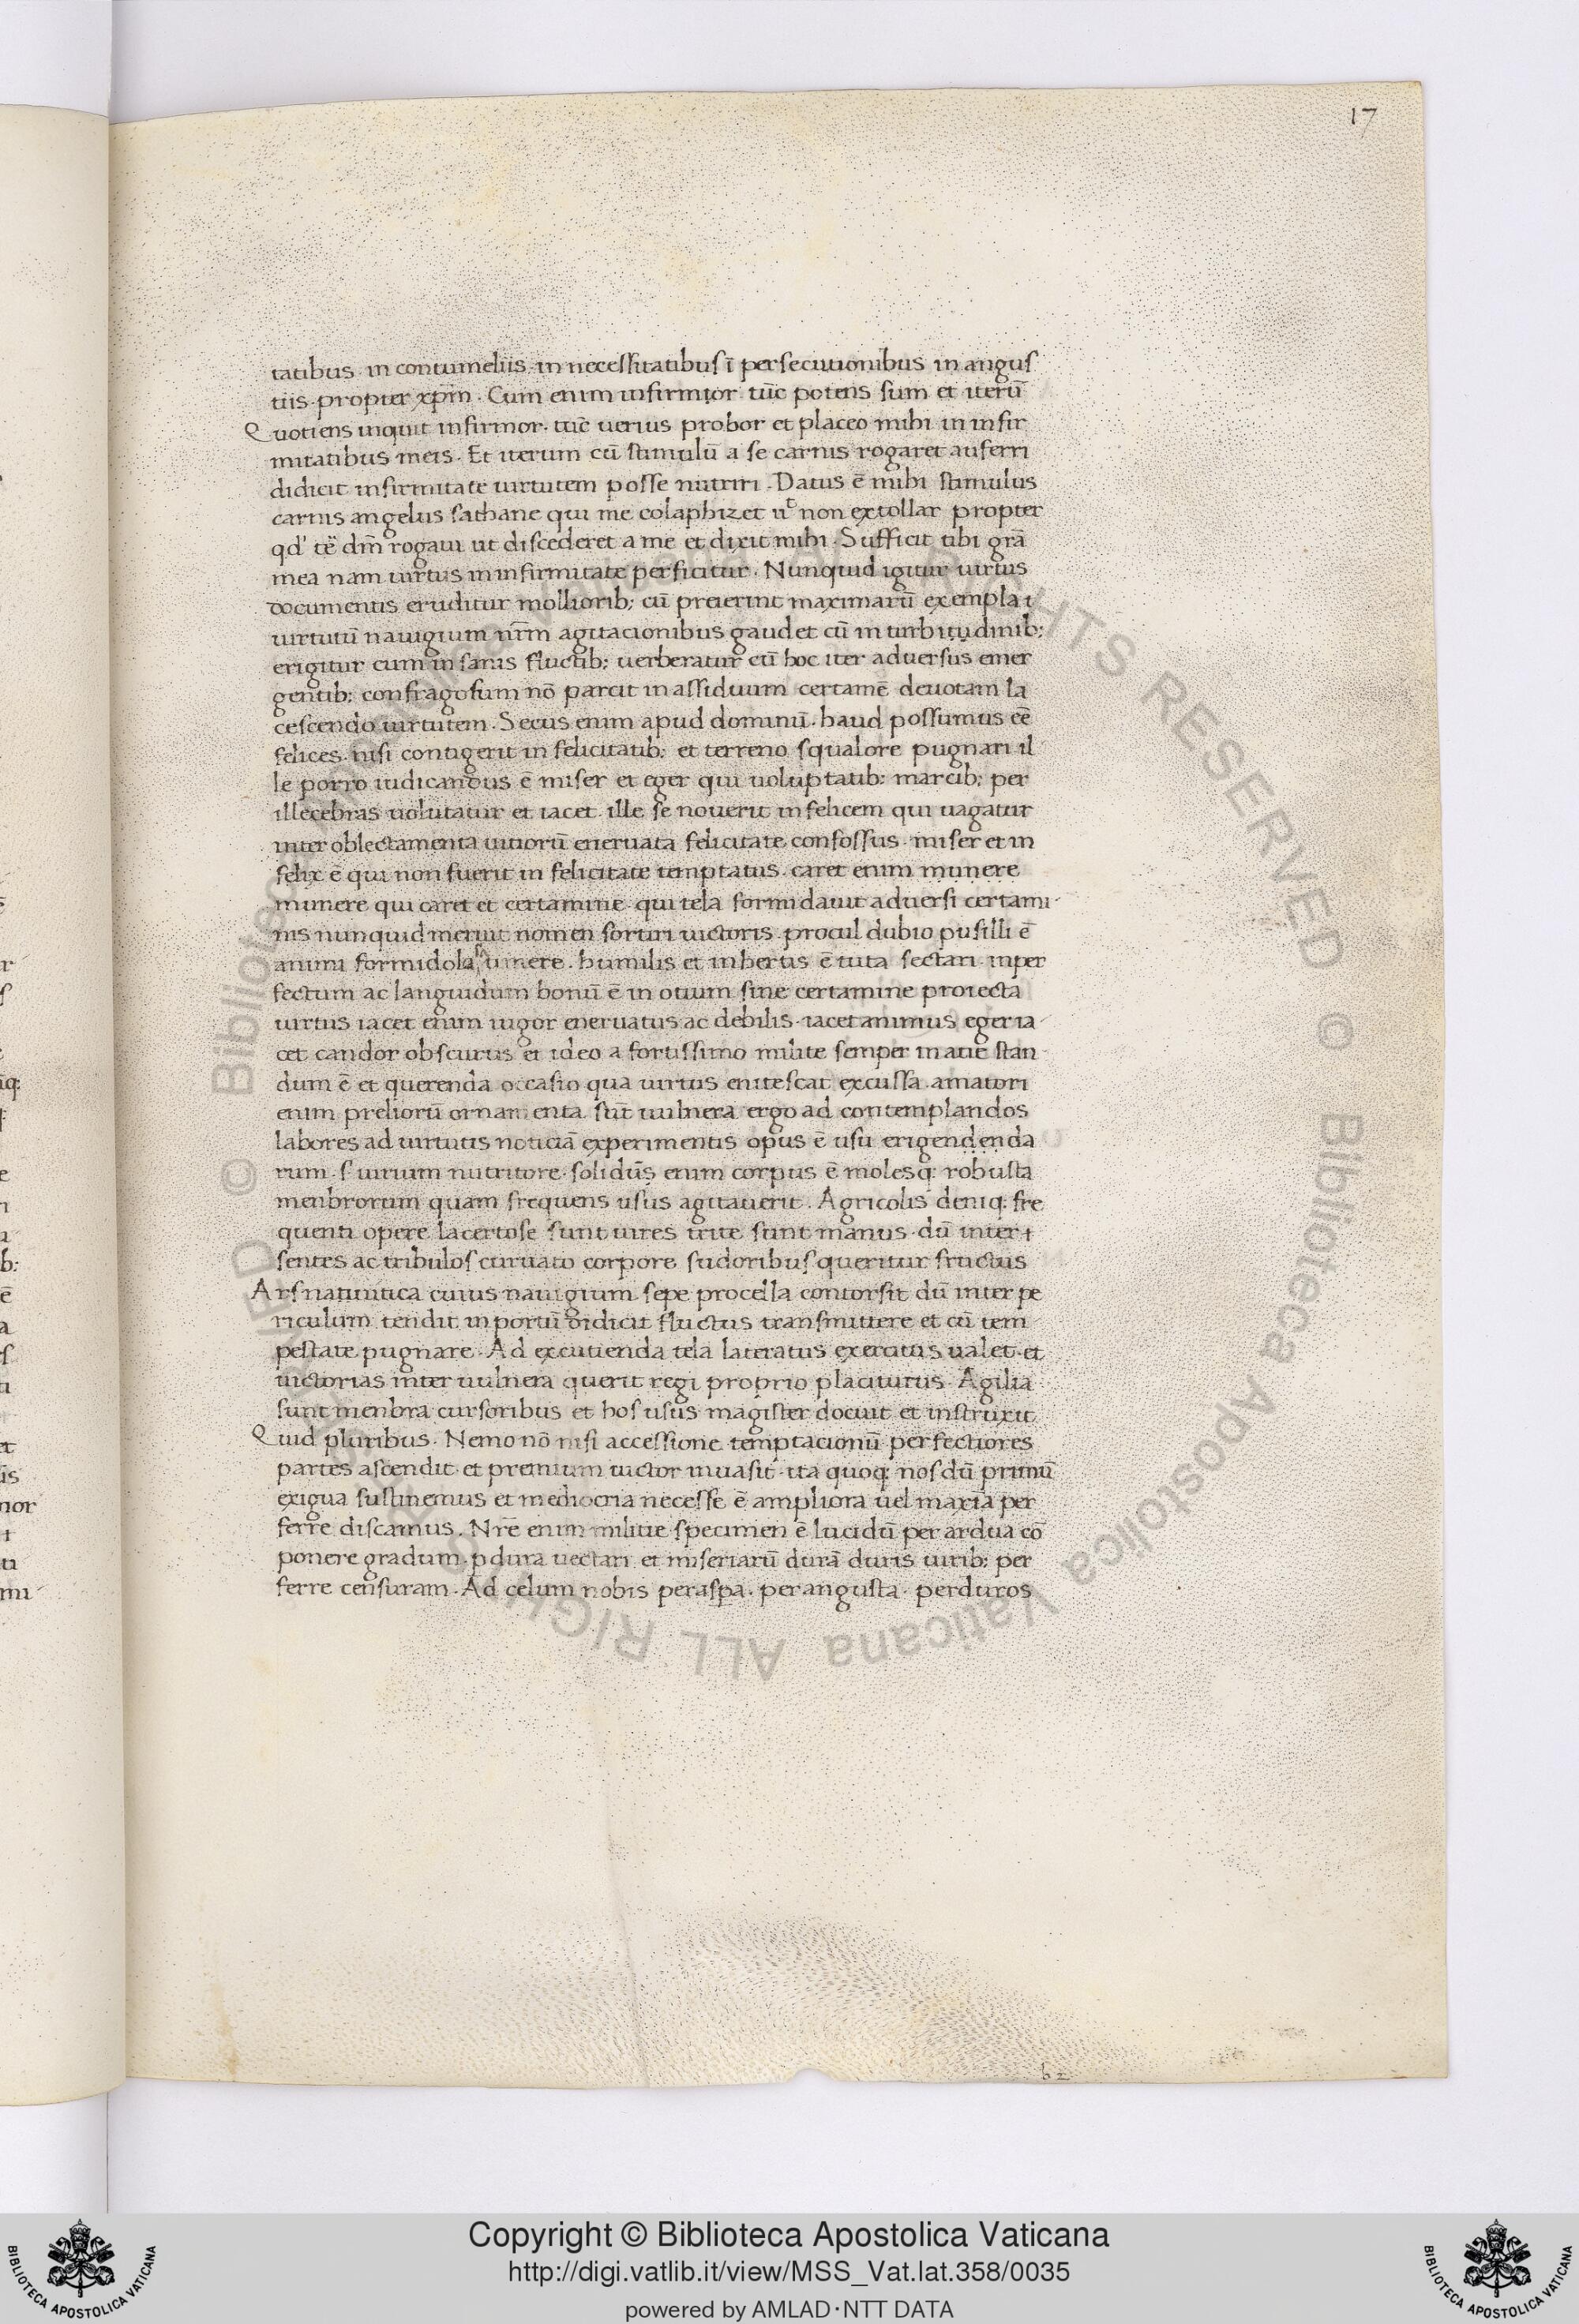 17
tatibus · in contumeliis · in necessitatibus ī persecutionibus in angus
tiis · propter xp̄m · Cum enim infirmior tūc potens sum et iterū
Quotiens inquit infirmor · tūc uerius probor et placeo mihi in infir
mitatibus meis · Et iterum cū stimulū a se carnis rogaret auferri
didicit infirmitate uirtutem posse nutriri · Datus ē mihi stimulus
carnis angelus sathane qui me colaphizet ut non extollar propter
qd' ter dm̄ rogaui ut discederet a me et dixit mihi · Sufficit tibi grā
mea nam uirtus in infirmitate perficitur · Nunquid igitur uirtus
documentis eruditur mollorib; cū preierint maximarū exempla
uirtutū nauigium nr̄m agitacionibus gaudet cū in turbitudinib;
erigitur cum insanis fluctib; uerberatur cū hoc iter aduersus emer
gentib; confragosum nō parcit in assiduum certamē deuotam la
cescendo uirtutem · Secus enim apud dominū · haud possumus eē
felices · nisi contigerit infelicitatib; et terreno squalore pugnari il
le porro iudicandus ē miser et eger qui uoluptatib; marcib; per
illecebras uolutatur et iacet · ille se nouerit infelicem qui uagatur
inter oblectamenta uitiorū eneruata felicitate confossus · miser et in
felix ē qui non fuerit infelicitate temptatus · caret enim munere
munere qui caret et certamine · qui tela formidauit aduersi certami
nis nunquid meruit nomen sortiri uictoris · procul dubio pusilli ē
animi formidolosa timere · humilis et inhertis ē tuta sectari · inper
fectum ac languidum bonū ē in otium sine certamine proiecta
uirtus iacet enim uigor eneruatus ac debilis · iacet animus eger ia
cet candor obscurus et ideo a fortissimo milite semper in acie stan
dum ē et querenda occasio qua uirtus enitescat excussa · amatori
enim preliorū ornamenta sūt uulnera ergo ad contemplandos
labores ad uirtutis noticiā experimentis opus ē usu erigendenda
rum · s uirium nutritore · solidūs enim corpus ē molesq; robusta
menbrorum quam frequens usus agitauerit · Agricolis deniq; fre
quenti opere lacertose sunt uires trite sunt manus · dū inter
sentes ac tribulos curuato corpore sudoribus queritur fructus
Ars nautitica cuius nauigium sepe procella contorsit dū inter pe
riculum tendit in portū didicit fluctus transmittere et cū tem
pestate pugnare · Ad excutienda tela lateratus exercitus ualet · et
uictorias inter uulnera querit regi proprio placiturus · Agilia
sunt menbra cursoribus et hos usus magister docuit et instruxit
Quid pluribus · Nemo nō nisi accessione temptacionū perfectiores
partes ascendit · et premium uictor inuasit · ita quoq; nos dū primū
exigua sustinemus et mediocria necesse ē ampliora uel maxīa per
ferre discamus · Nr̄e enim militie specimen ē lucidū per ardua cō
ponere gradum · p dura uectari et miseriarū durā duris uirib; per
ferre censuram · Ad celum nobis per aspa · per angusta · per duros
b 2
© Biblioteca Apostolica Vaticana ALL RIGHTS RESERVED
Copyright © Biblioteca Apostolica Vaticana
http://digi.vatlib.it/view/MSS_Vat.lat.358/0035
powered by AMLAD·NTT DATA
BIBLIOTECA APOSTOLICA VATICANA
BIBLIOTECA APOSTOLICA VATICANA